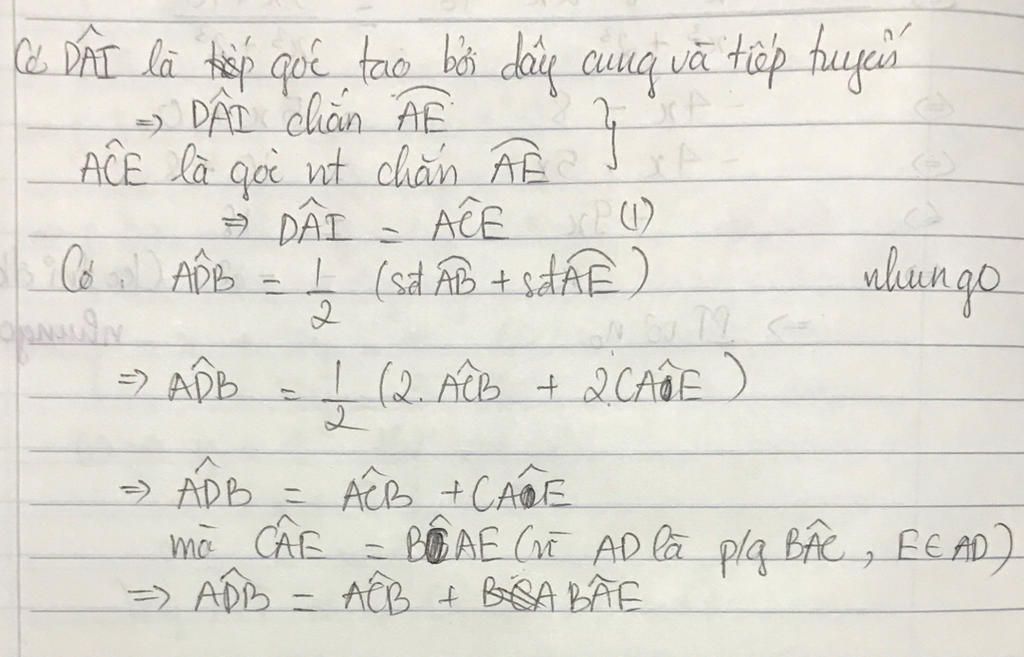 Có DÂI là góc tạo bởi dây cung và tiếp tuyến
⇒ DÂI chắn AE
AĈE là góc nt chắn AE
⇒ DÂI = AĈE (1)
Có AD̂B = 1/2 (sđ AB + sđ AE) nhungo
⇒ AD̂B = 1/2 (2.AĈB + 2.CÂE)
⇒ AD̂B = AĈB + CÂE
mà CÂE = BÂE (vì AD là p/g BÂC, E∈AD)
⇒ AD̂B = AĈB + BÂE